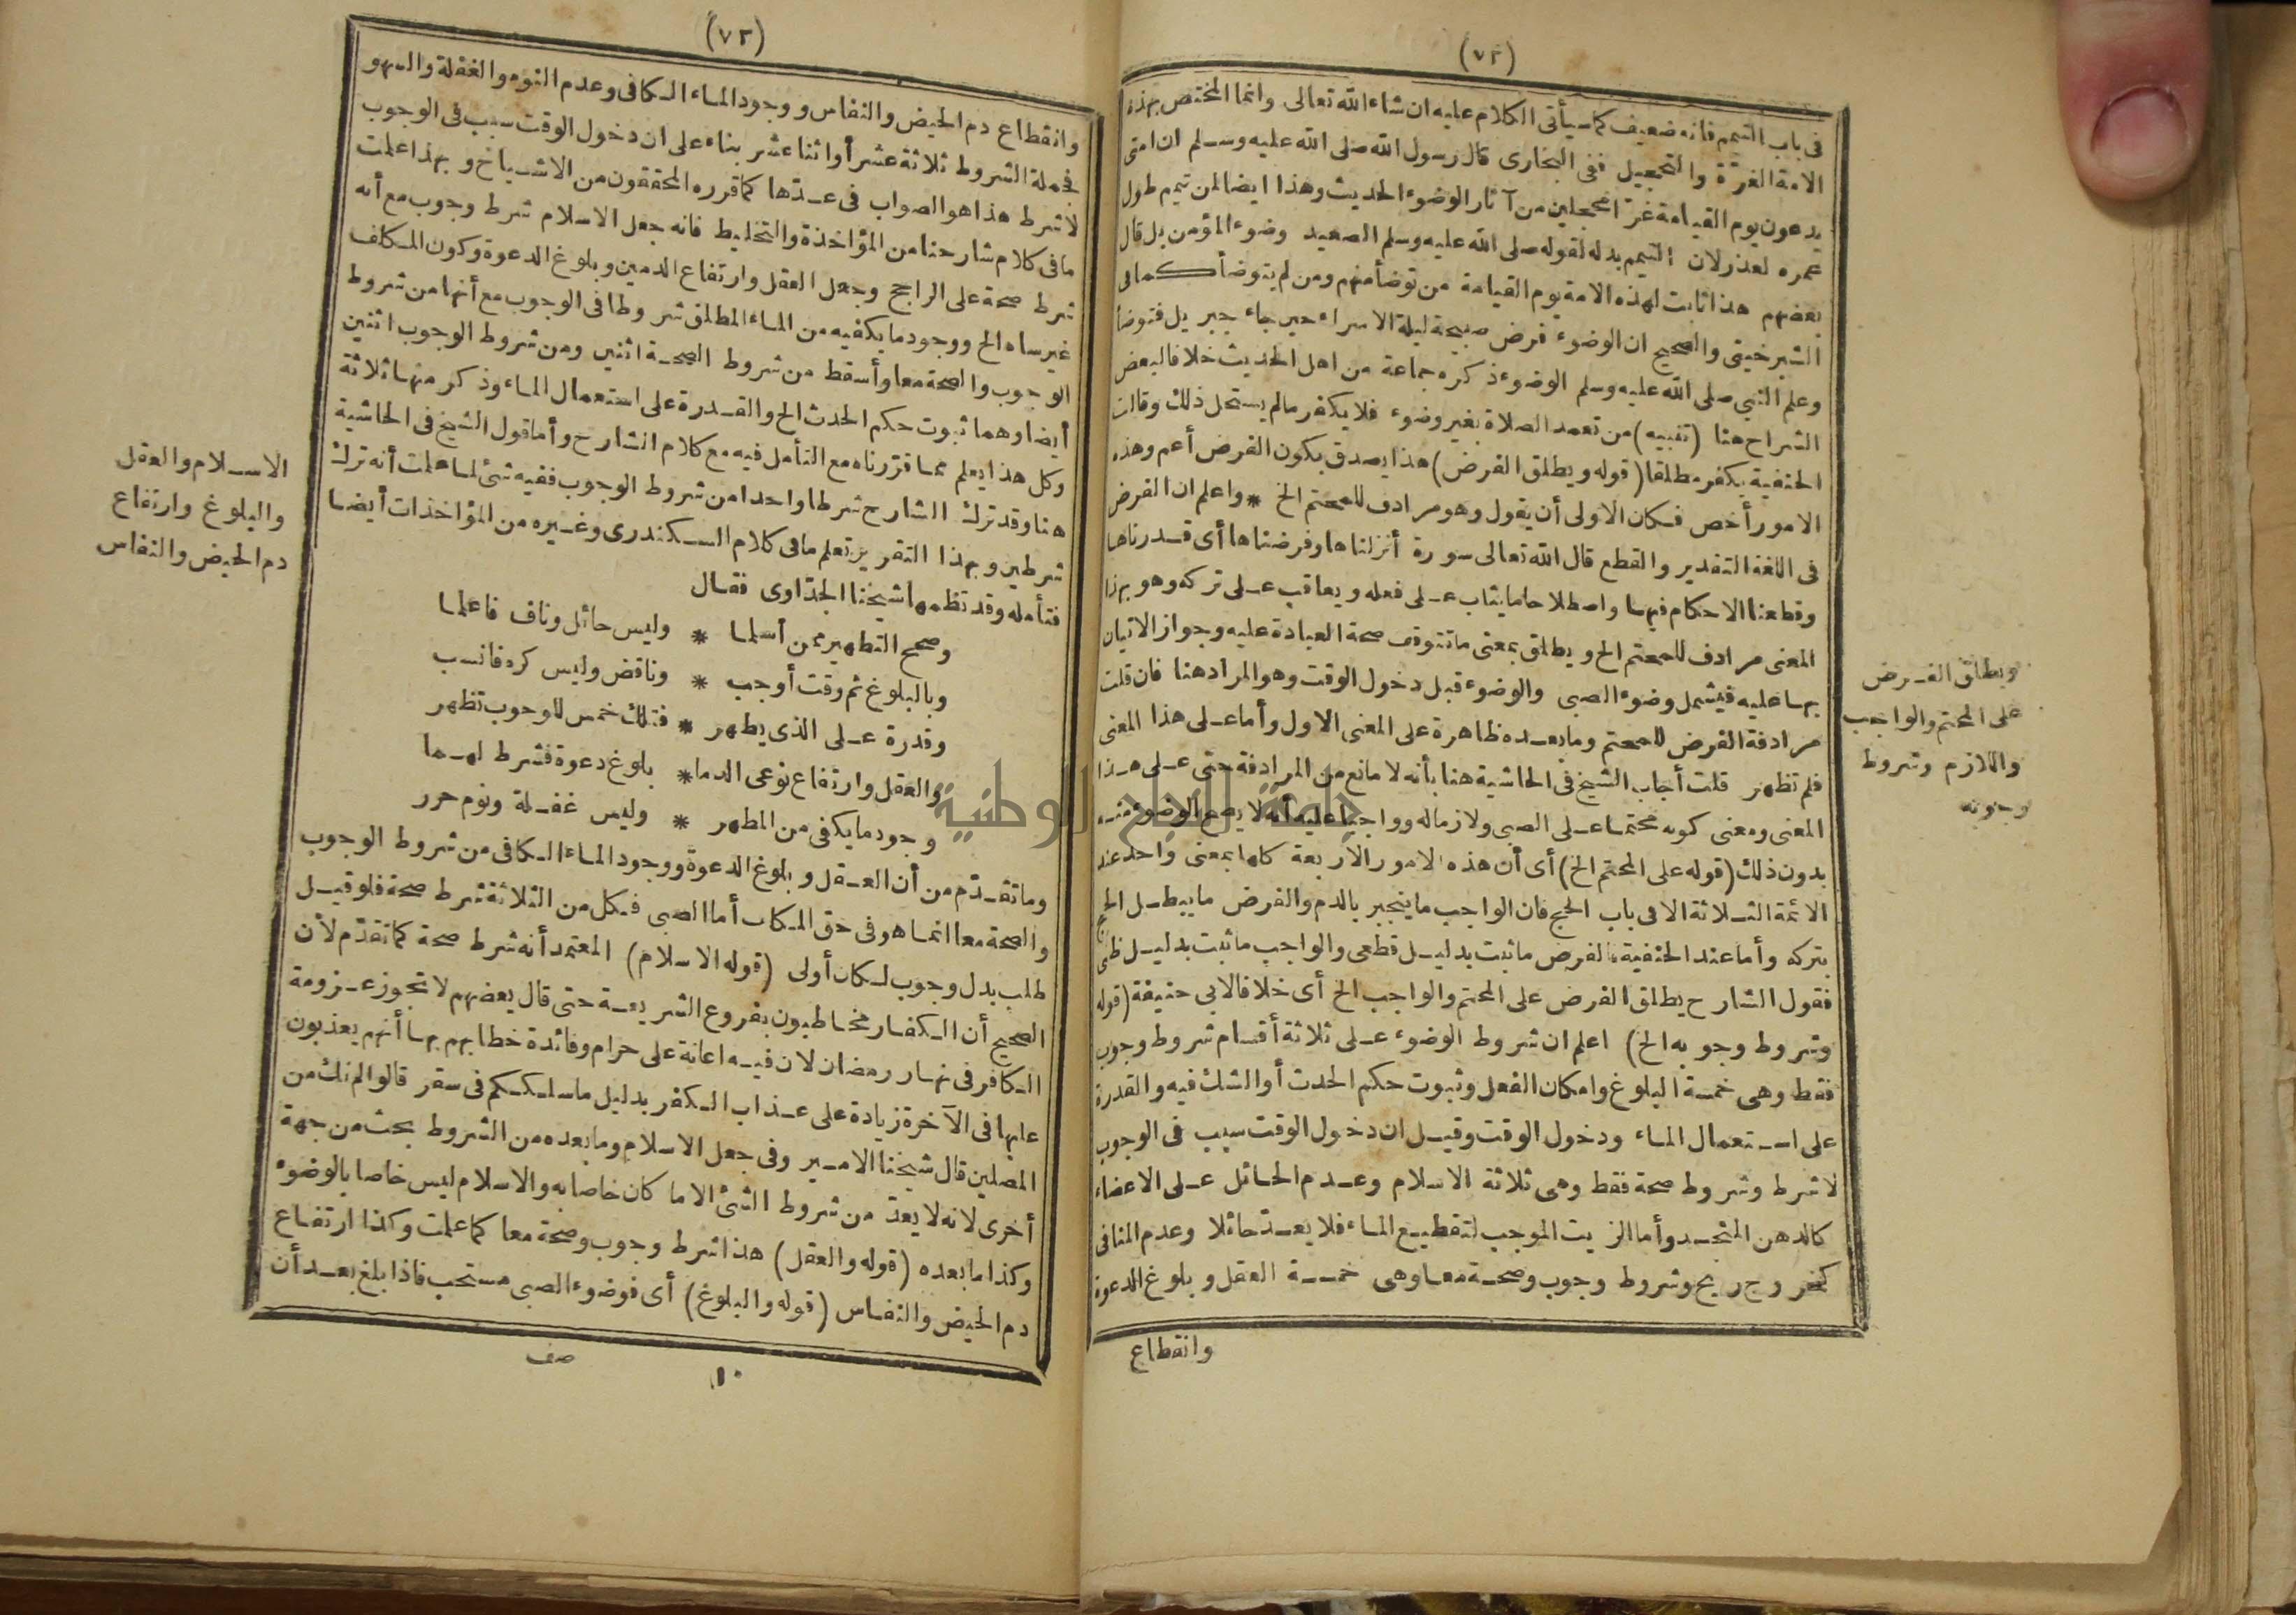 (٧٢)
فى باب التيمم فانه ضعيف كما سيأتى الكلام عليه ان شاء الله تعالى وانما المختص بهذه
الامة الغرة والتحجيل ففى البخارى قال رسول الله صلى الله عليه وسلم ان امتى
يدعون يوم القيامة غرا محجلين من آثار الوضوء الحديث وهذا ايضا لمن تيمم طول
عمره لعذر لان التيمم بدله لقوله صلى الله عليه وسلم الصعيد وضوء المؤمن بل قال
بعضهم هذا ثابت لهذه الامة يوم القيامة من توضأ منهم ومن لم يتوضأ كما فى
الشبرخيتى والصحيح ان الوضوء فرض صبيحة ليلة الاسراء حين جاء جبريل فتوضأ
وعلم النبى صلى الله عليه وسلم الوضوء ذكره جماعة من اهل الحديث خلافا لبعض
الشراح هنا (تنبيه) من تعمد الصلاة بغير وضوء فلا يكفر ما لم يستحل ذلك وقالت
الحنفية يكفر مطلقا (قوله ويطلق الفرض) هذا يصدق بكون الفرض أعم وهذه
الامور أخص فكان الاولى أن يقول وهو مرادف للمحتم الخ * واعلم ان الفرض
فى اللغة التقدير والقطع قال الله تعالى سورة أنزلناها وفرضناها أى قدرناها
وقطعنا الاحكام فيها واصطلاحا ما يثاب على فعله ويعاقب على تركه وهو بهذا
المعنى مرادف للمحتم الخ ويطلق بمعنى ما تتوقف صحة العبادة عليه وجواز الاتيان
بها عليه فيشمل وضوء الصبى والوضوء قبل دخول الوقت وهو المراد هنا فان قلت
مرادفة الفرض للمحتم وما بعده ظاهرة على المعنى الاول وأما على هذا المعنى
فلم تظهر قلت أجاب الشيخ فى الحاشية هنا بأنه لا مانع من المرادفة حتى على هذا
المعنى ومعنى كونه محتما على الصبى ولازما له وواجبا عليه أنه لا يصح الوضوء منه
بدون ذلك (قوله على المحتم الخ) أى أن هذه الامور الأربعة كلها بمعنى واحد عند
الائمة الثلاثة الا فى باب الحج فان الواجب ما ينجبر بالدم والفرض ما يبطل الحج
بتركه وأما عند الحنفية فالفرض ما ثبت بدليل قطعى والواجب ما ثبت بدليل ظنى
فقول الشارح يطلق الفرض على المحتم والواجب الخ أى خلافا لابى حنيفة (قوله
وشروط وجوبه الخ) اعلم ان شروط الوضوء على ثلاثة أقسام شروط وجوب
فقط وهى خمسة البلوغ وامكان الفعل وثبوت حكم الحدث أو الشك فيه والقدرة
على استعمال الماء ودخول الوقت وقيل ان دخول الوقت سبب فى الوجوب
لا شرط وشروط صحة فقط وهى ثلاثة الاسلام وعدم الحائل على الاعضاء
كالدهن المتجسد وأما الزيت الموجب لتقطيع الماء فلا يعد حائلا وعدم المنافى
كخروج ريح وشروط وجوب وصحة معا وهى خمسة العقل وبلوغ الدعوة
وانقطاع
ويطلق الفرض
على المحتم والواجب
واللازم وشروط
وجوبه
(٧٣)
وانقطاع دم الحيض والنفاس ووجود الماء الكافى وعدم النوم والغفلة والسهو
فجملة الشروط ثلاثة عشر أو اثنا عشر بناء على ان دخول الوقت سبب فى الوجوب
لا شرط هذا هو الصواب فى عدتها كما قرره المحققون من الاشياخ وبهذا علمت
ما فى كلام شارحنا من المؤاخذة والتخليط فانه جعل الاسلام شرط وجوب مع أنه
شرط صحة على الراجح وجعل العقل وارتفاع الدمين وبلوغ الدعوة وكون المكلف
غير ساه الخ ووجود ما يكفيه من الماء المطلق شروطا فى الوجوب مع أنها من شروط
الوجوب والصحة معا وأسقط من شروط الصحة اثنين ومن شروط الوجوب اثنين
أيضا وهما ثبوت حكم الحدث الخ والقدرة على استعمال الماء وذكر منها ثلاثة
وكل هذا يعلم مما قررناه مع التأمل فيه مع كلام الشارح وأما قول الشيخ فى الحاشية
هنا وقد ترك الشارح شرطا واحدا من شروط الوجوب ففيه شئ لما علمت أنه ترك
شرطين وبهذا التقرير تعلم ما فى كلام السكندرى وغيره من المؤاخذات أيضا
فتأمله وقد نظمها شيخنا الجداوى فقال
وصحح التطهير ممن أسلما * وليس حائل وناف فاعلما
وبالبلوغ ثم وقت أوجب * وناقض وليس كره فانسب
وقدرة على الذى يطهر * فتلك خمس للوجوب تظهر
والعقل وارتفاع نوعى الدما * بلوغ دعوة فشرط لهما
وجود ما يكفى من المطهر * وليس غفلة ونوم حرر
وما تقدم من أن العقل وبلوغ الدعوة ووجود الماء الكافى من شروط الوجوب
والصحة معا انما هو فى حق المكلف أما الصبى فكل من الثلاثة شرط صحة فلو قيل
طلب بدل وجوب لكان أولى (قوله الاسلام) المعتمد أنه شرط صحة كما تقدم لأن
الصحيح أن الكفار مخاطبون بفروع الشريعة حتى قال بعضهم لا تجوز عزومة
الكافر فى نهار رمضان لان فيه اعانة على حرام وفائدة خطابهم بها أنهم يعذبون
عليها فى الآخرة زيادة على عذاب الكفر بدليل ما سلككم فى سقر قالوا لم نك من
المصلين قال شيخنا الامير وفى جعل الاسلام وما بعده من الشروط بحث من جهة
أخرى لانه لا يعد من شروط الشئ الا ما كان خاصا به والاسلام ليس خاصا بالوضوء
وكذا ما بعده (قوله والعقل) هذا شرط وجوب وصحة معا كما علمت وكذا ارتفاع
دم الحيض والنفاس (قوله والبلوغ) أى فوضوء الصبى مستحب فاذا بلغ بعد أن
١٠ صف
الاسلام والعقل
والبلوغ وارتفاع
دم الحيض والنفاس
جامعة النجاح الوطنية